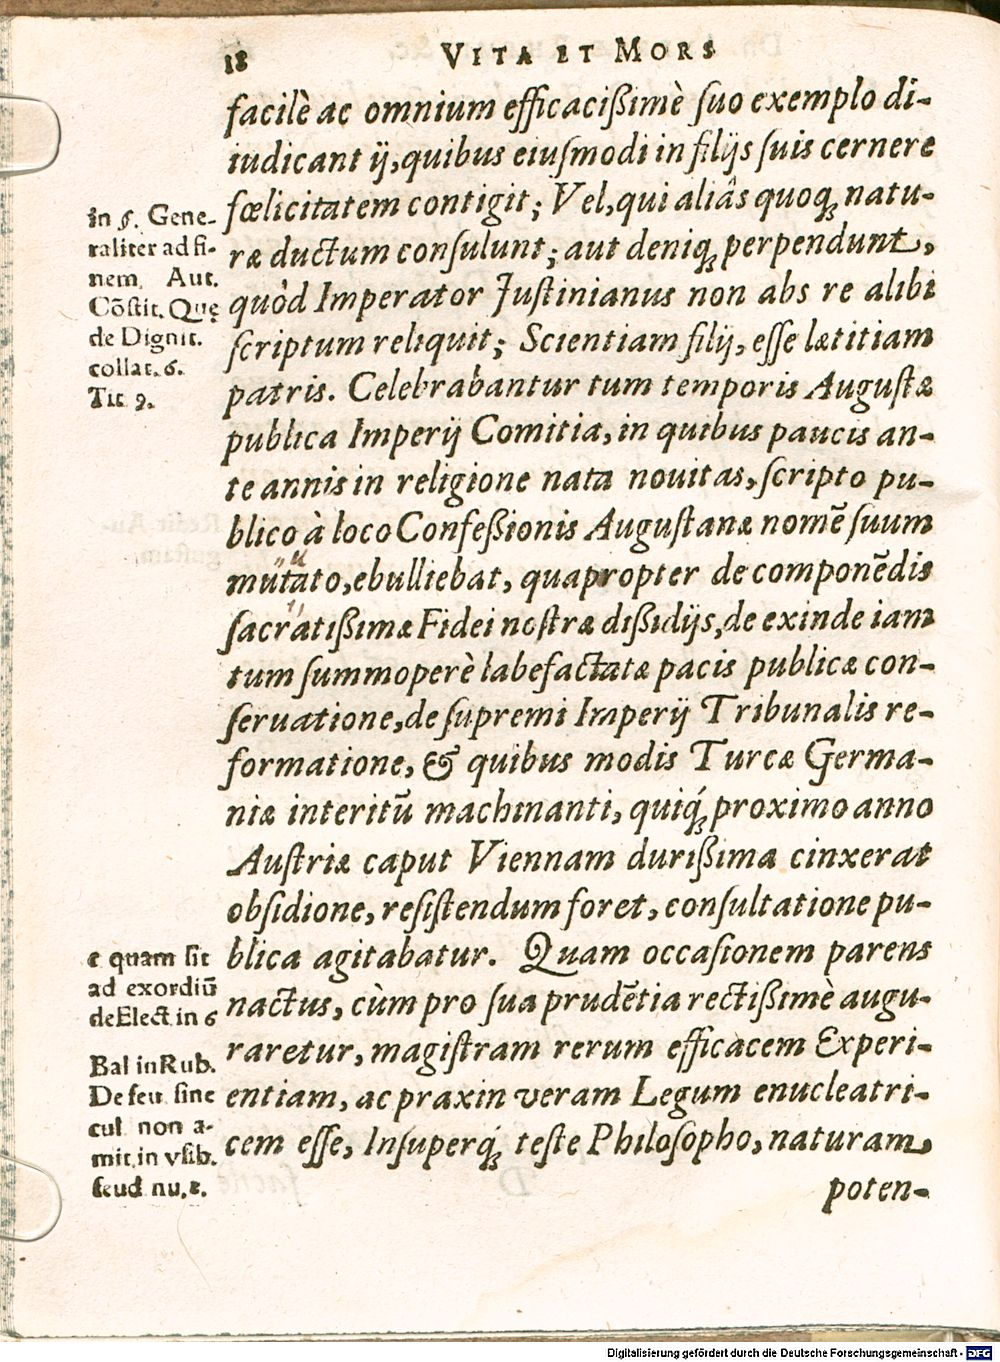 18 VITA ET MORS
facilè ac omnium efficacißimè ſuo exemplo di-
iudicant ij, quibus eiuſmodi in filijs ſuis cernere
fœlicitatem contigit; Vel, qui aliâs quoq; natu-
ræ ductum conſulunt; aut deniq; perpendunt,
quòd Imperator Juſtinianus non abs re alibi
ſcriptum reliquit; Scientiam filij, eſſe lætitiam
patris. Celebrabantur tum temporis Auguſtæ
publica Imperij Comitia, in quibus paucis an-
te annis in religione nata nouitas, ſcripto pu-
blico à loco Confeßionis Auguſtanæ nomē ſuum
mutato, ebulliebat, quapropter de componēdis
ſacratißimæ Fidei noſtræ dißidijs, de exinde iam
tum ſummoperè labefactatæ pacis publicæ con-
ſeruatione, de ſupremi Imperij Tribunalis re-
formatione, & quibus modis Turcæ Germa-
niæ interitū machinanti, quiq́; proximo anno
Auſtriæ caput Viennam durißima cinxerat
obſidione, reſiſtendum foret, conſultatione pu-
blica agitabatur. Quam occaſionem parens
nactus, cùm pro ſua prudētia rectißimè augu-
raretur, magiſtram rerum efficacem Experi-
entiam, ac praxin veram Legum enucleatri-
cem eſſe, Inſuperq́; teſte Philoſopho, naturam
poten-
in §. Gene-
raliter ad fi-
nem. Aut.
Cōſtit. Quę
de Dignit.
collat. 6.
Tit 9.
e quam ſit
ad exordiū
de Elect. in 6
Bal in Rub.
De feu. ſine
cul. non a-
mit. in vſib.
feud. nu. 1.
Digitalisierung gefördert durch die Deutsche Forschungsgemeinschaft - DFG